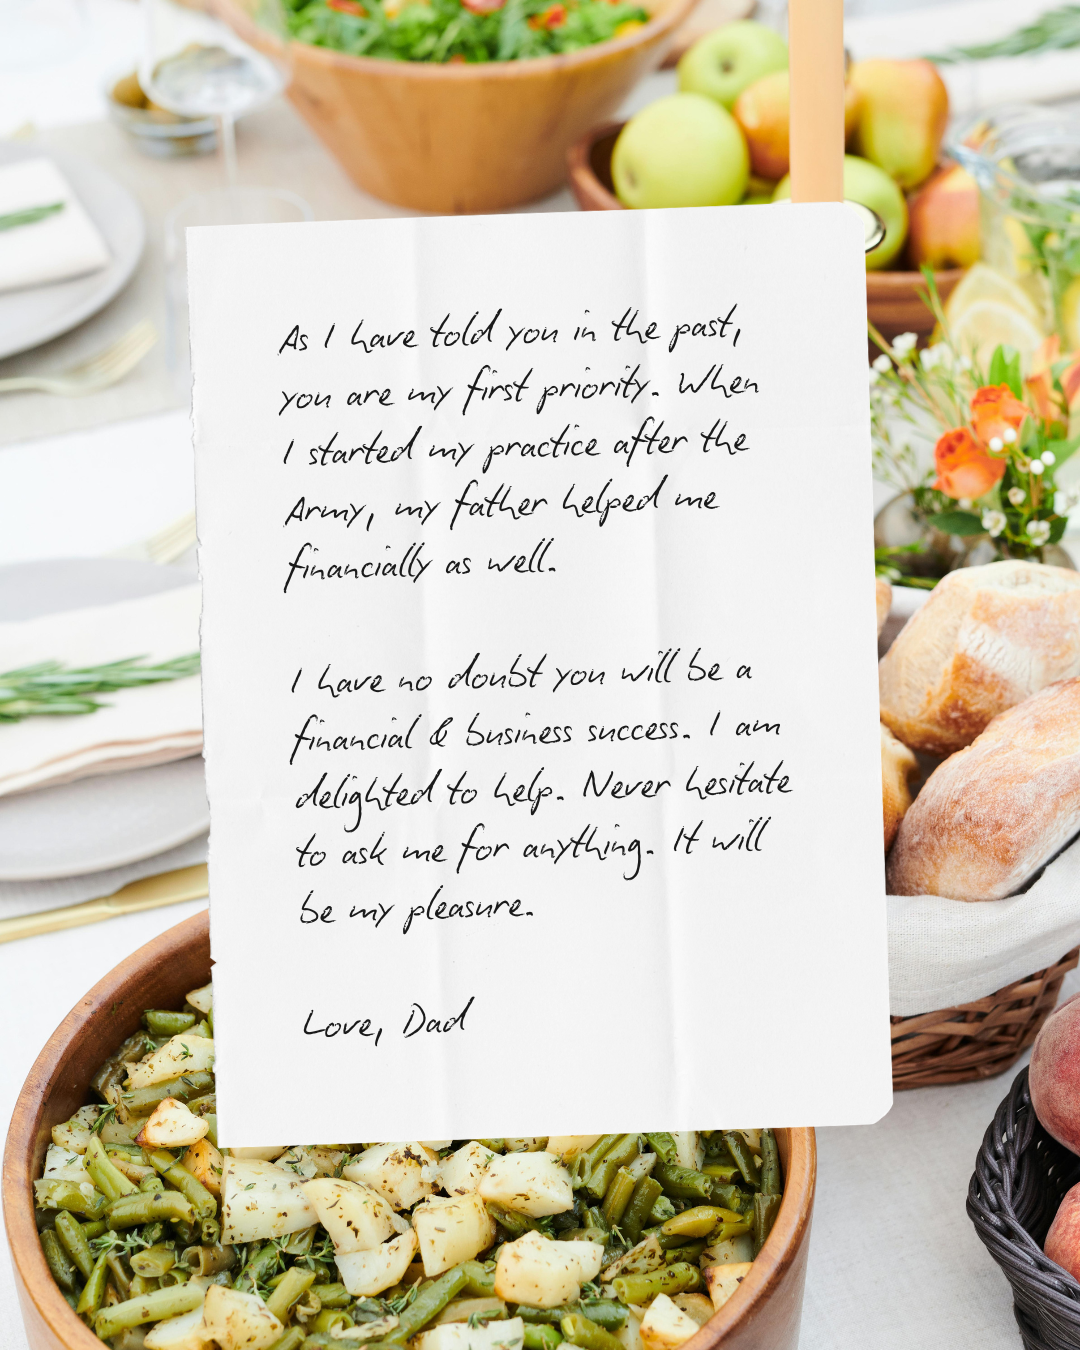 As I have told you in the past,
you are my first priority. When
I started my practice after the
Army, my father helped me
financially as well.
I have no doubt you will be a
financial & business success. I am
delighted to help. Never hesitate
to ask me for anything. It will
be my pleasure.
Love, Dad